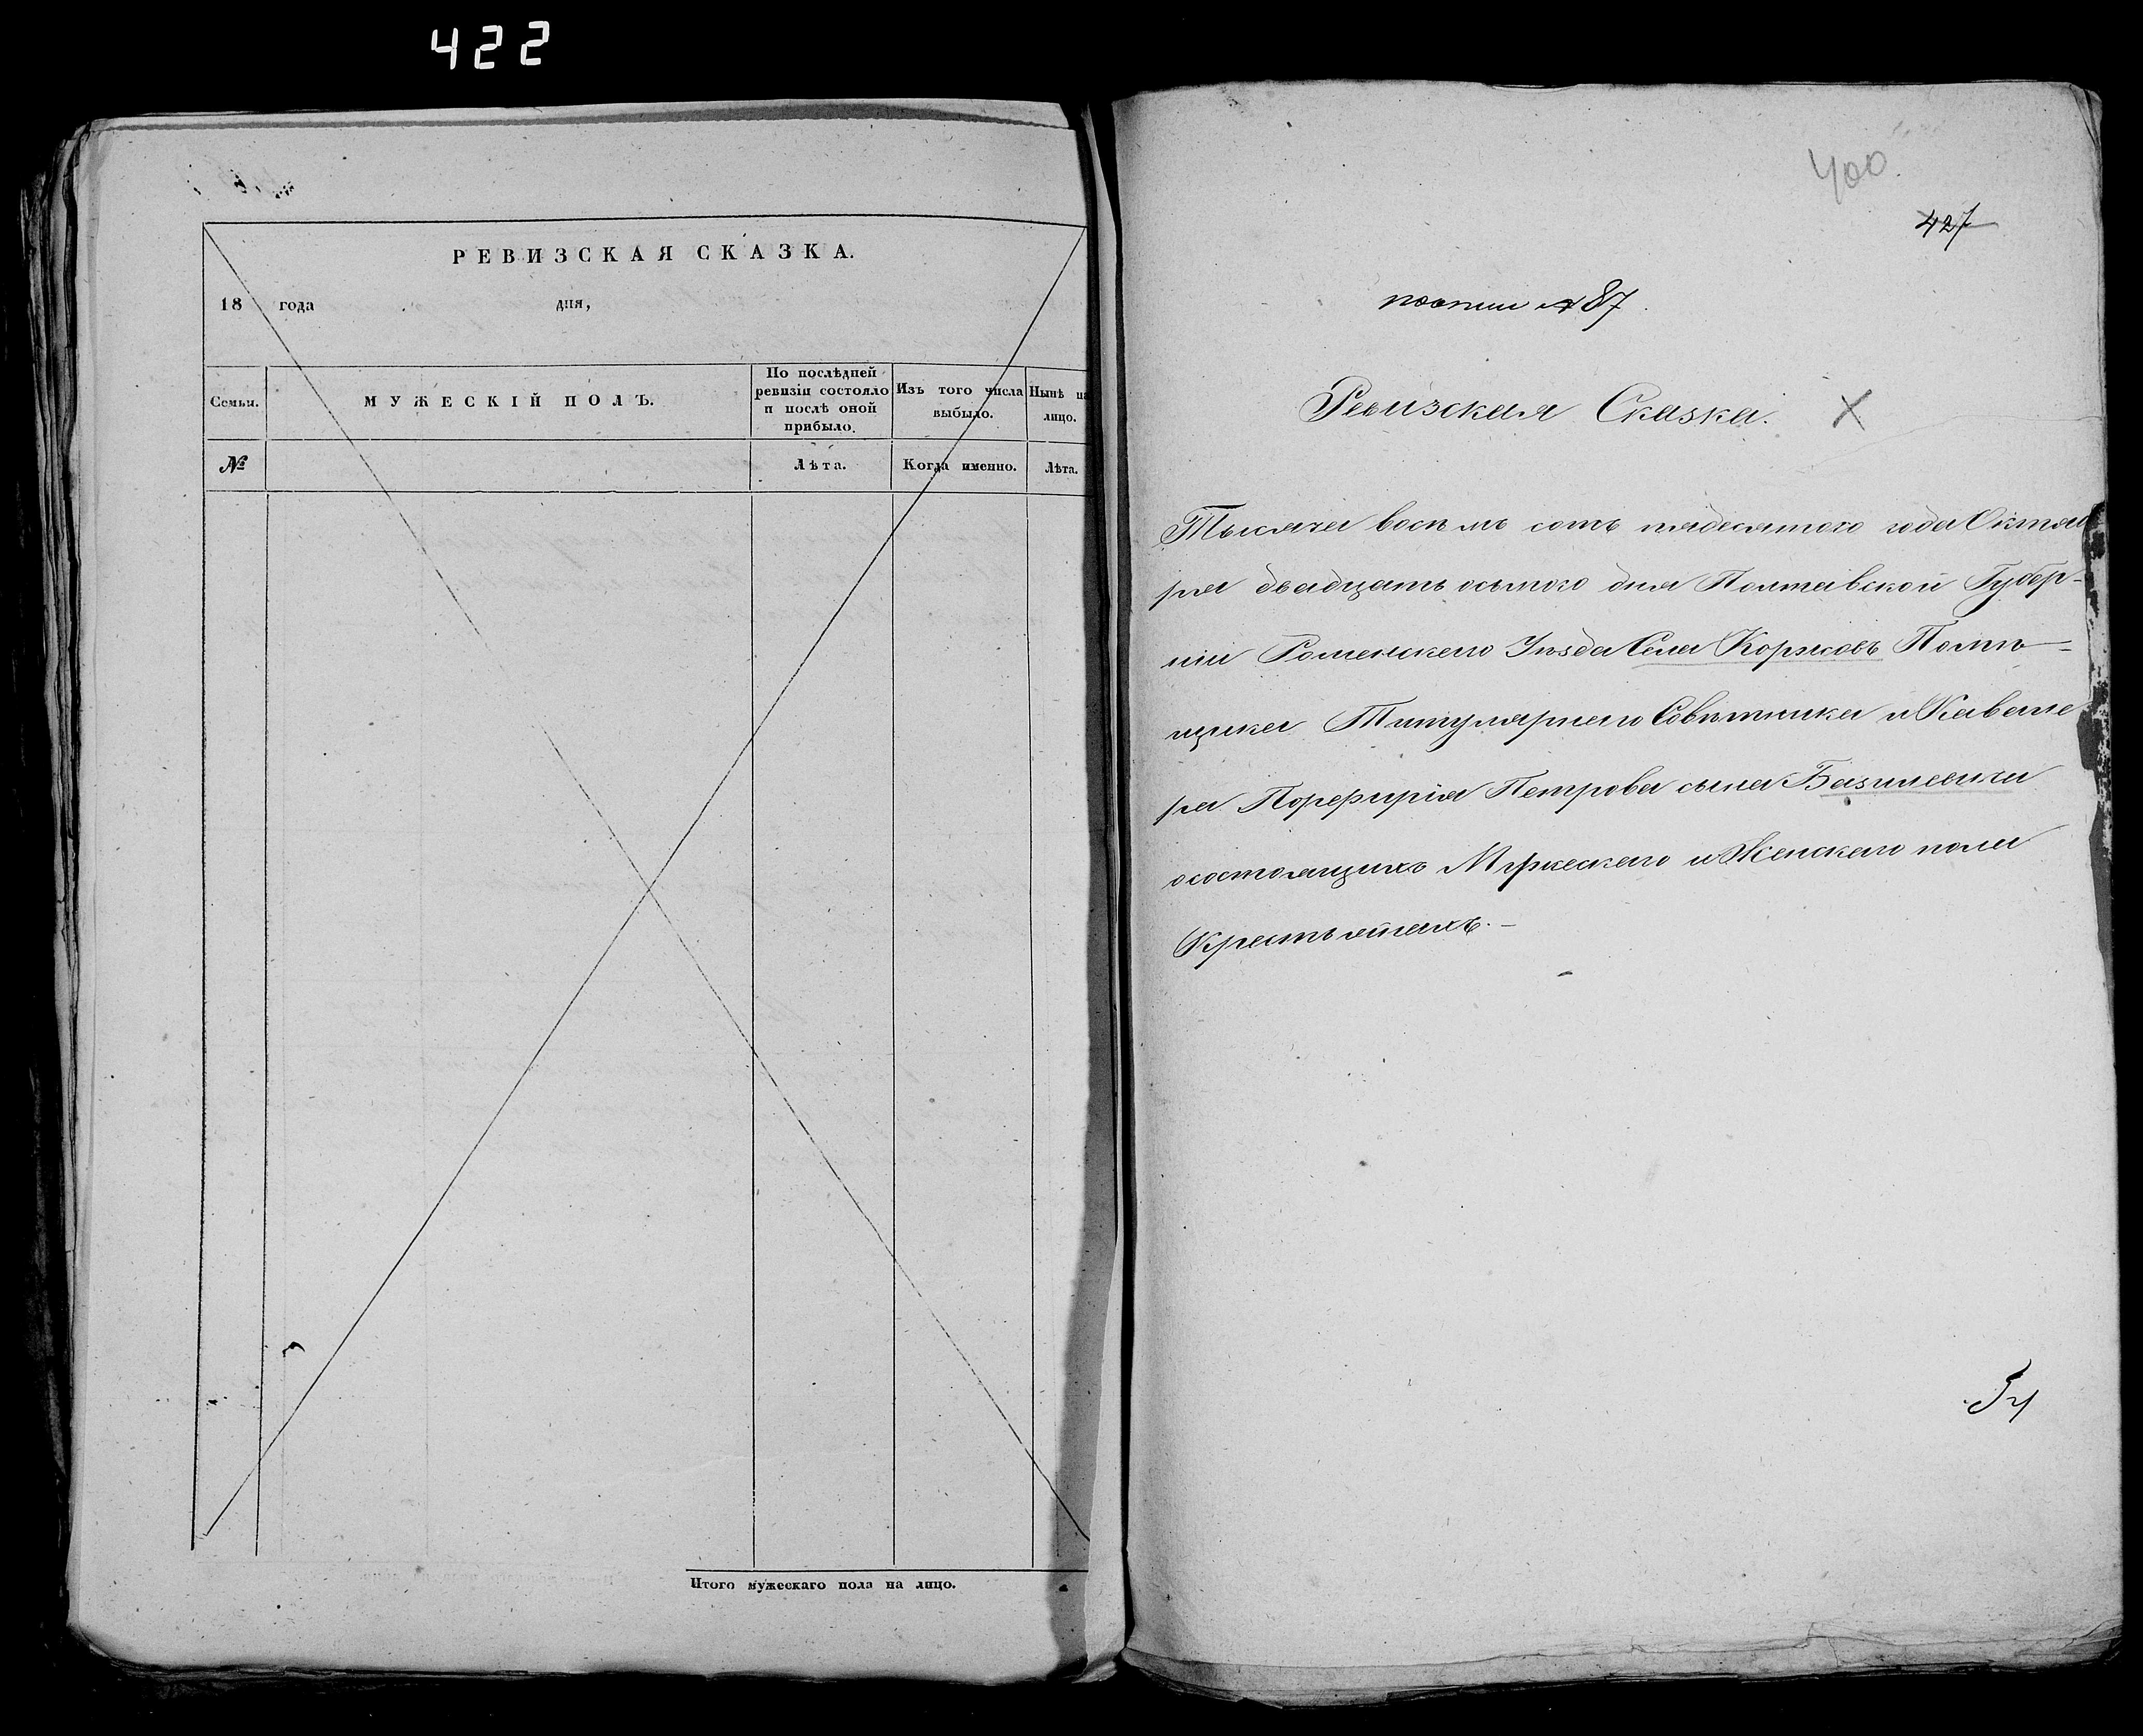 422
РЕВИЗСКАЯ СКАЗКА.
18 года дня,
Семьи.
МУЖЕСКІЙ ПОЛЪ.
По послѣдней
ревизіи состояло
и послѣ оной
прибыло.
Изъ того числа
выбыло.
Нынѣ на
лицо.
№
Лѣта.
Когда именно.
Лѣта.
Итого мужескаго пола на лицо.
400.
427
№ 87
Ревизская Сказка.
Тысяча восемь сотъ пядесятого года Октяб
ря двадцать осьмого дня Полтавской Губер-
ніи Роменскаго Уѣзда Села Коржовъ Помѣ-
щика Титулярнаго Совѣтника и Кавале
ра Порфирія Петрова сына Базилевича
осостоящихъ Мужескаго и Женскаго пола
Крестьянахъ.-